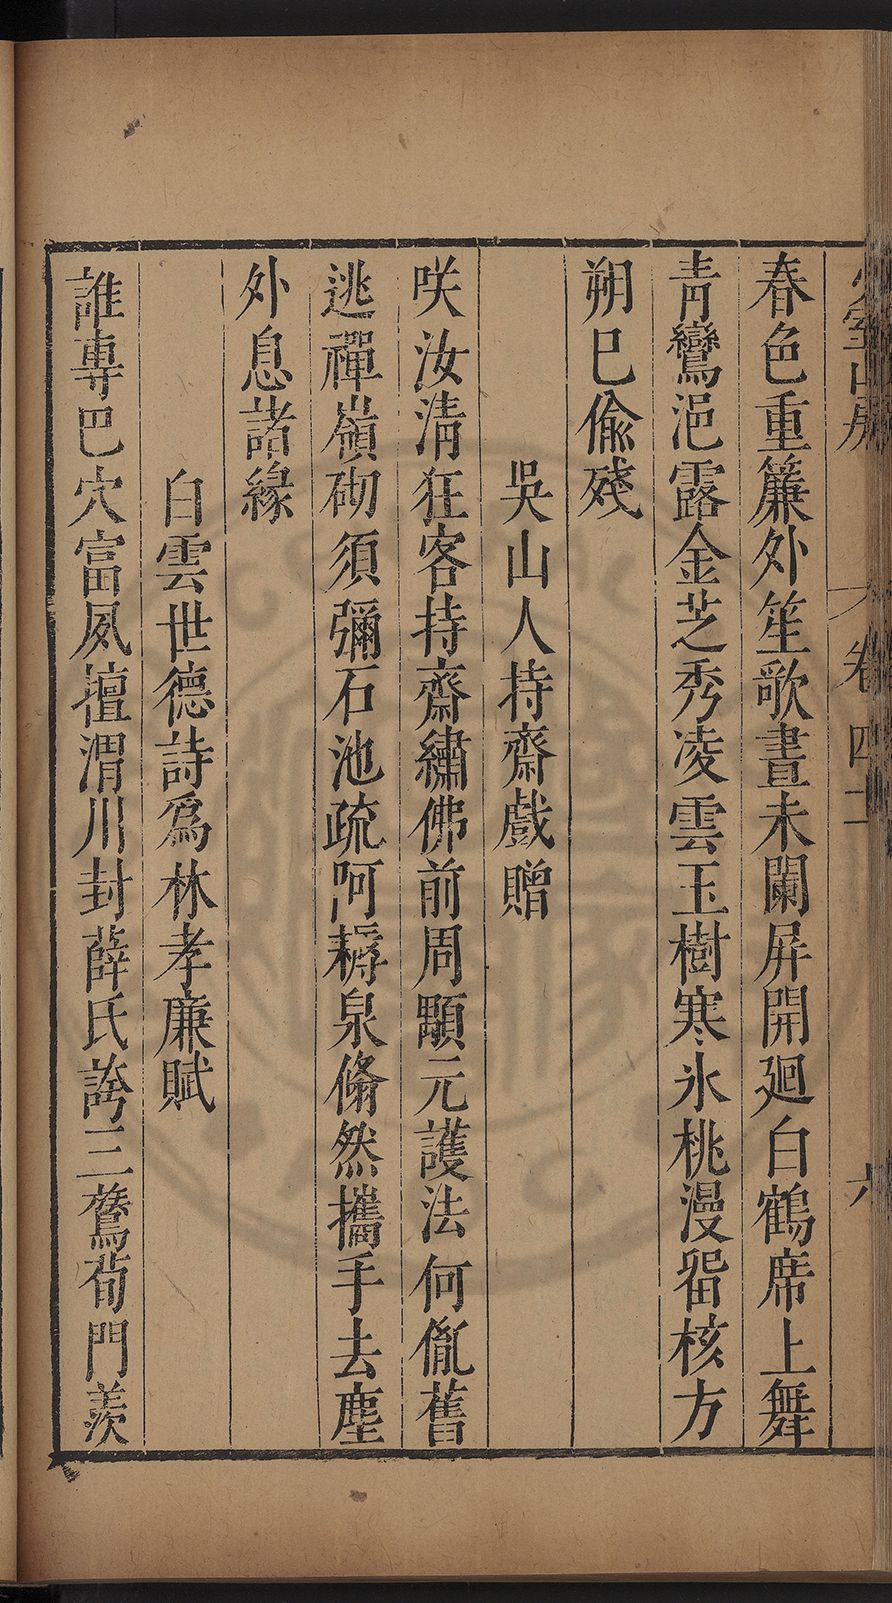 少室山房 卷四十 六
春色重簾外笙歌晝未闌屏開廻白鶴席上舞
青鸞浥露金芝秀凌雲玉樹寒冰桃漫畱核方
朔巳偸殘
吳山人持齋戲贈
咲汝淸狂客持齋繡佛前周顒元護法何胤舊
逃禪嶺砌須彌石池疏阿耨泉翛然攜手去塵
外息諸緣
白雲世德詩爲林孝廉賦
誰專巴穴富夙擅渭川封薛氏誇三鶖荀門羨